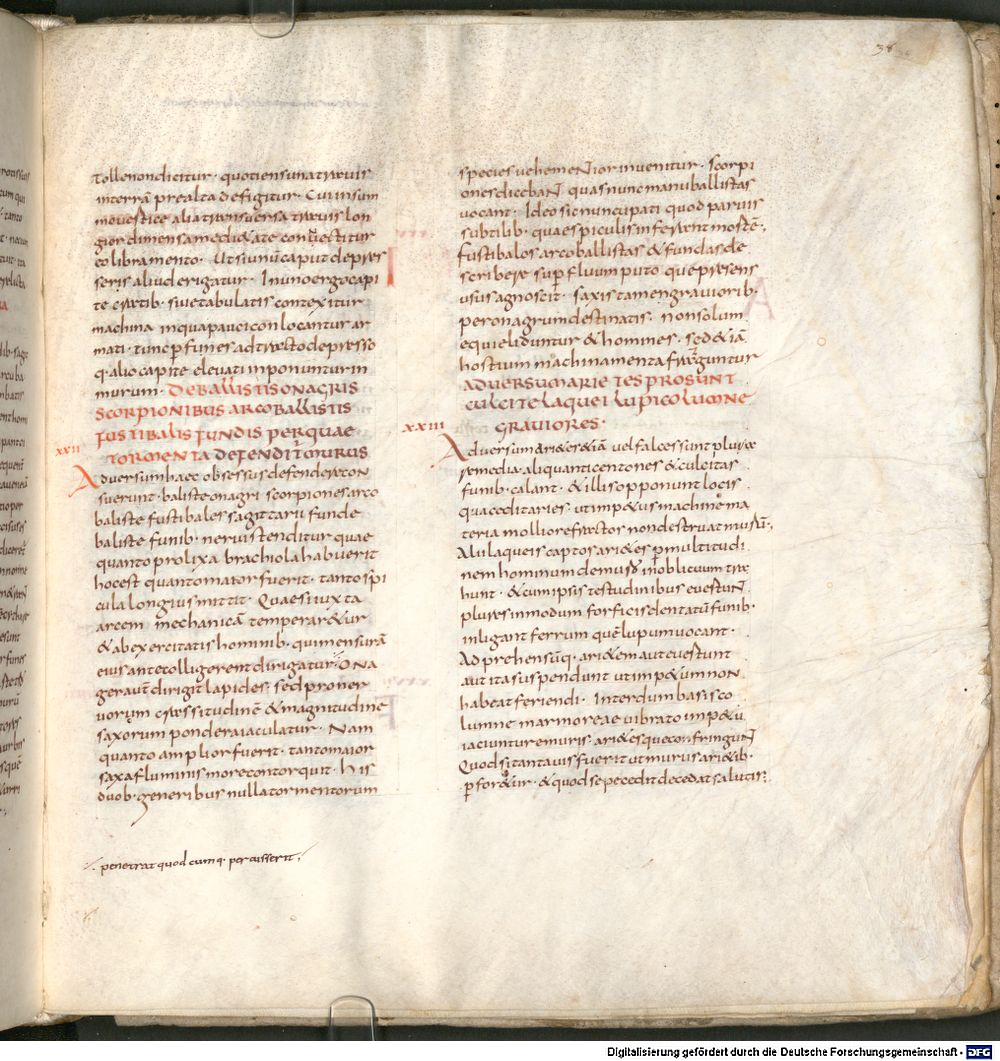 38
tollenon dicitur · quotiens una trabis
in terrā prealta defigitur · Cui in sum
mo vestice alia transversa trabis lon
gior dimensa medi&ate convectitur
eo libramento · Ut si unū caput depres
seris aliud erigatur · In uno ergo capi
te cratib· sive tabulatis contexitur
machina in qua pauci conlocantur ar
mati · tunc p funes adtracto depresso
q· alio capite elevati inponuntur in
murum · DE BALLISTIS ONAGRIS
SCORPIONIBUS ARCOBALLISTIS
FUSTIBALIS FUNDIS PER QUAE
XXII TORMENTA DEFENDIT MURUS
Adversum haec obsessus defendere con
suerunt · baliste onagri scorpiones arco
baliste fustibales sagittarii funde
baliste funib· nervis tenditur quae
quanto prolixa brachiola habuerit
hoc est quanto maior fuerit · tanto spi
cula longius mittit · Quae si iuxta
artem mechanicā temperar&ur
& ab exercitatis hominib· qui mensurā
eius ante colligerent dirigatur · Ona
ger autē dirigit lapides · sed pro ner
vorum crassitudinē & magnitudine
saxorum pondera iaculatur · Nam
quanto amplior fuerit · tanto maior
saxa fluminis more contorquit · his
duob· generibus nulla tormentorum
·/. penetrat quodcumq· percusserit ·/
species vehementior invenitur · scorpi
ones dicebant quas nunc manuballistas
vocant · Ideo sic nuncupati quod parvis
subtilib· quae spiculis inferant mortē·
fustibalos arcoballistas & fundas de
scribere supfluum puto que presens
usus agnoscit · saxis tamen gravorib·
per onagrum destinatis · non solum
equi eliduntur & homines · sed &iā
hostium machinamenta franguntur
ADVERSUM ARIETES PROSUNT
CULCITE LAQUEI LUPI COLUMNE
XXIII GRAVIORES ·
Adversum ari&es &iā vel falces sunt plura
remedia · aliquanti centones & culcitas
funib· calant · & illis opponunt locis
qua cedit aries · ut imp&us machine ma
teria molliore fractor non destruat murū·
Alii laqueis captos ari&es p multitudi
nem hominum de muro in oblicuum tra
hunt · & cum ipsis testudinibus evertunt
plures in modum forficis dentatū funib·
inligant ferrum quē lupum vocant ·
Adprehensūq· ari&em aut evertunt
aut ita suspendunt ut imp&um non
habeat feriendi · Interdum basis co
lumne marmoreae vibrato imp&u
iaciuntur e muris · ari&esque confringunt
Quod si tanta vis fuerit ut murus ari&ib·
pfor&ur · & quod sepe cedit decedat salutis·
Digitalisierung gefördert durch die Deutsche Forschungsgemeinschaft - DFG